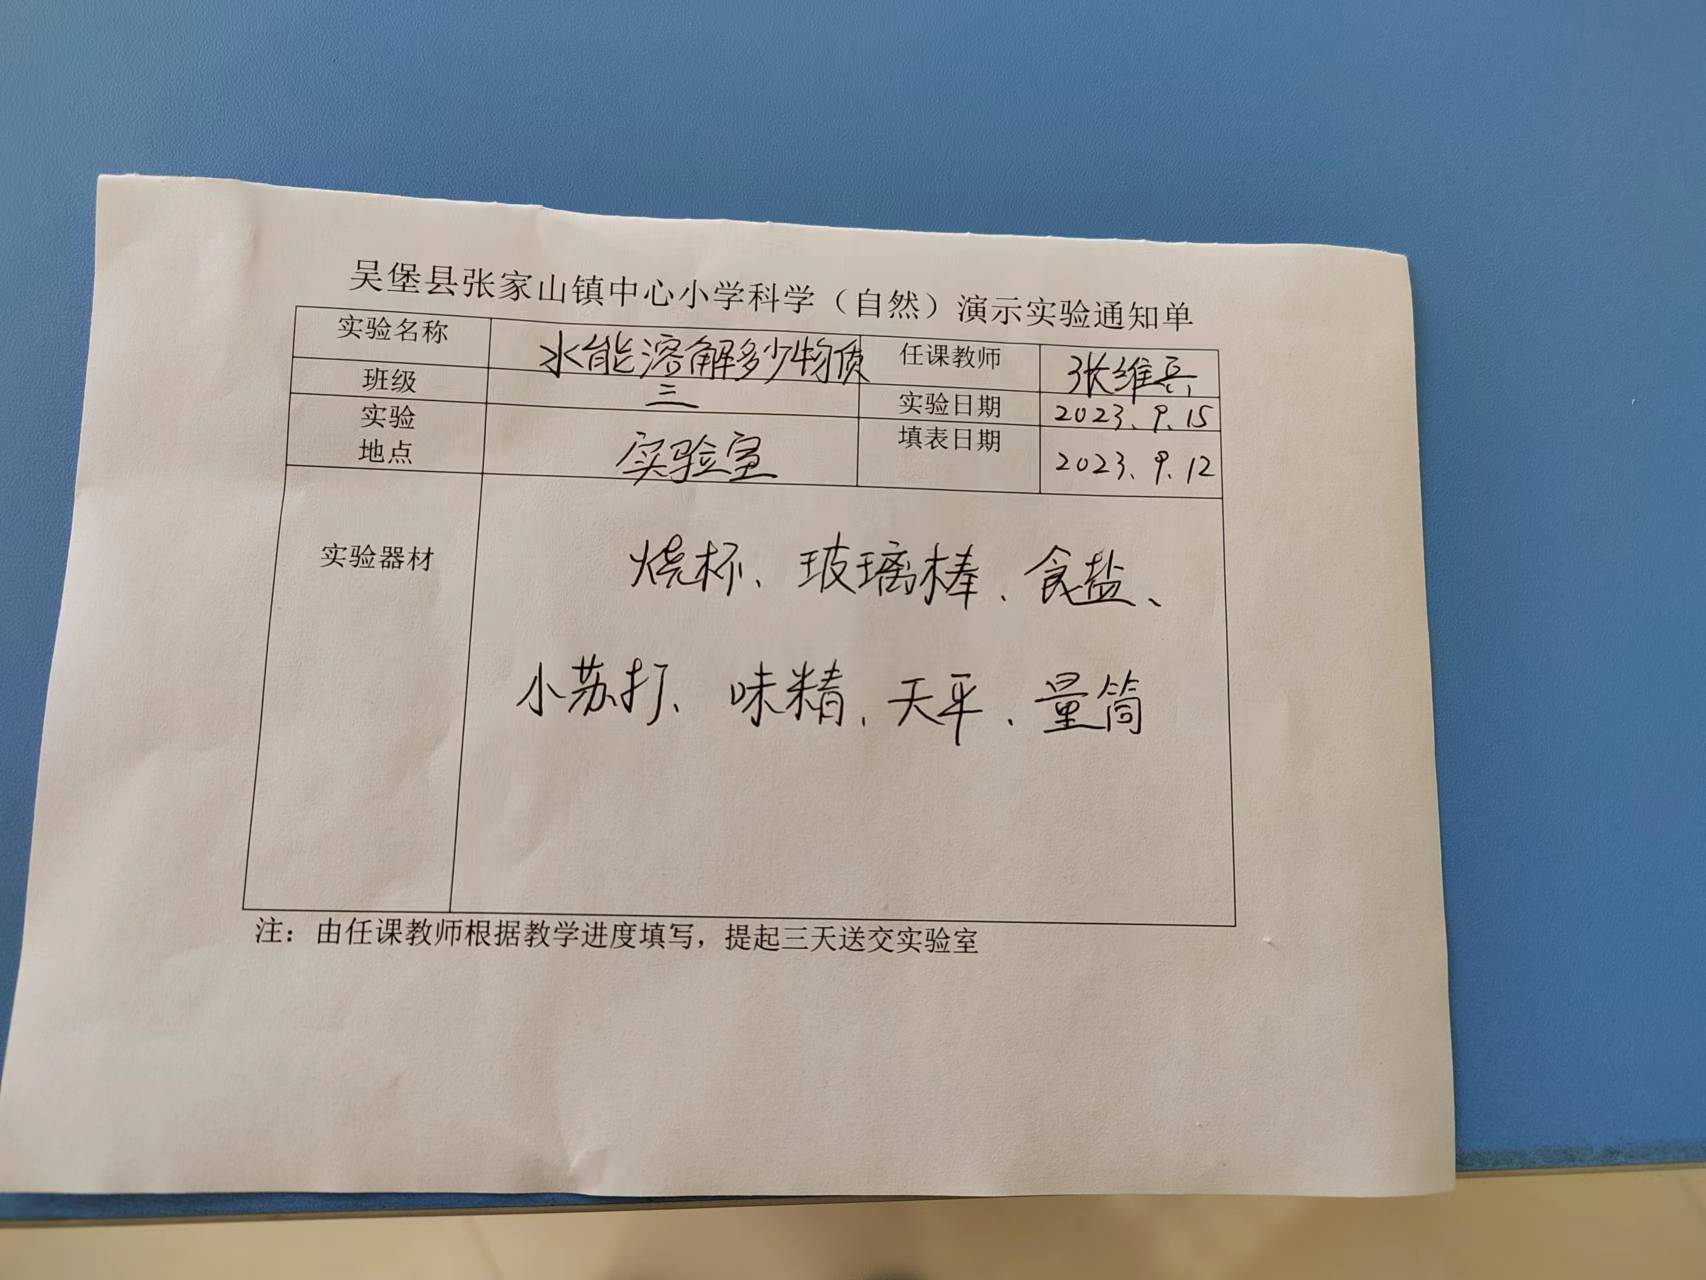 吴堡县张家山镇中心小学科学（自然）演示实验通知单
实验名称 水能溶解多少物质 任课教师 张维兵
班级 三 实验日期 2023.9.15
实验地点 实验室 填表日期 2023.9.12
实验器材
烧杯、玻璃棒、食盐、
小苏打、味精、天平、量筒
注：由任课教师根据教学进度填写，提起三天送交实验室